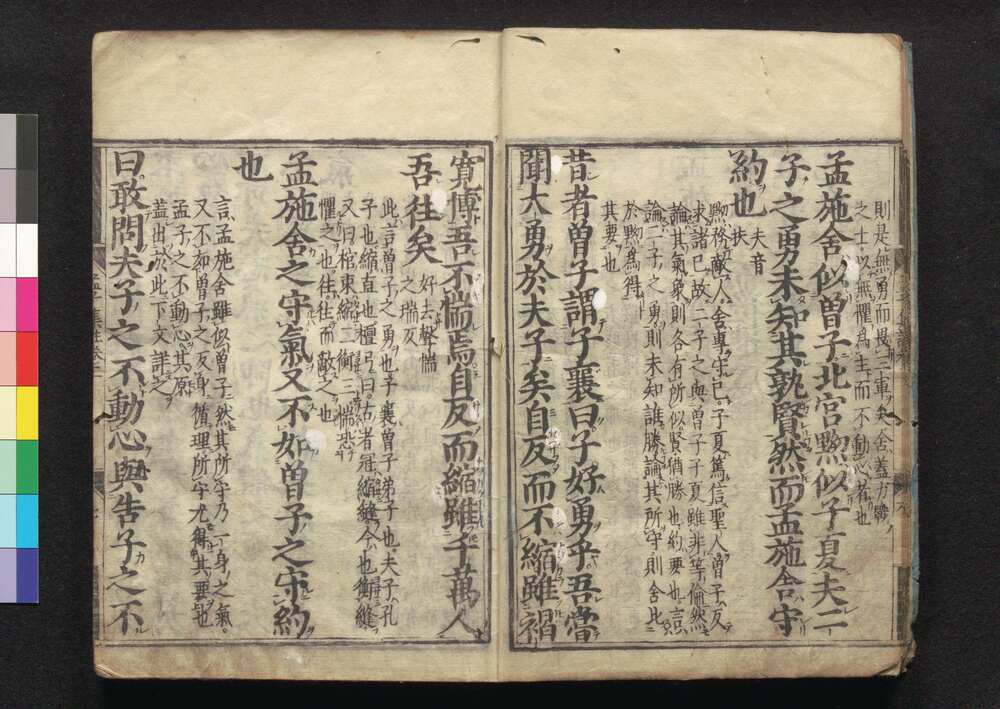 則是無勇而畏三軍矣舍蓋力戰
之士以無懼爲主而不動心者也
孟施舍似曽子北宮黝似子夏夫二
子之勇未知其孰賢然而孟施舍守
約也
夫音
扶
黝務敵人舍專守己子夏篤信聖人曽子反
求諸己故二子之與曽子子夏雖非等倫然
論其氣象則各有所似賢猶勝也約要也言
論二子之勇則未知誰勝論其所守則舍比
於黝爲得
其要也
昔者曽子謂子襄曰子好勇乎吾嘗
聞大勇於夫子矣自反而不縮雖褐
寛博吾不惴焉自反而縮雖千萬人
吾往矣
好去聲惴
之瑞反
此言曽子之勇也子襄曽子弟子也夫子孔
子也縮直也檀弓曰古者冠縮縫今也衡縫
又曰棺束縮二衡三惴恐
懼之也往往而敵之也
孟施舍之守氣又不如曽子之守約
也
言孟施舍雖似曽子然其所守乃一身之氣
又不如曽子之反身循理所守尤得其要也
孟子之不動心其原
蓋出於此下文詳之
曰敢問夫子之不動心與告子之不